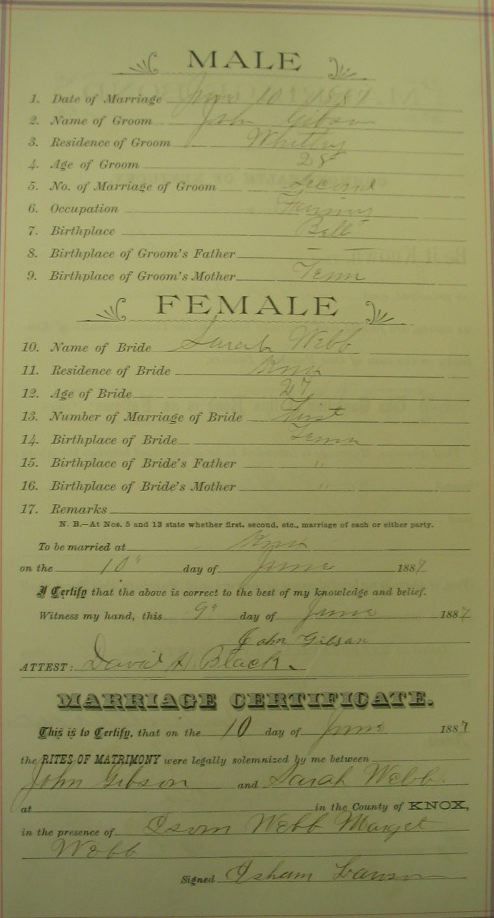 MALE
1. Date of Marriage June 10 1887
2. Name of Groom John Gibson
3. Residence of Groom Whitley
4. Age of Groom 28
5. No. of Marriage of Groom Second
6. Occupation Farming
7. Birthplace Bell
8. Birthplace of Groom's Father
9. Birthplace of Groom's Mother Tenn
FEMALE
10. Name of Bride Sarah Webb
11. Residence of Bride Knox
12. Age of Bride 27
13. Number of Marriage of Bride First
14. Birthplace of Bride Tenn
15. Birthplace of Bride's Father "
16. Birthplace of Bride's Mother "
17. Remarks
N. B.—At Nos. 5 and 13 state whether first, second, etc., marriage of each or either party.
To be married at Knox
on the 10" day of June 1887
I Certify that the above is correct to the best of my knowledge and belief.
Witness my hand, this 9" day of June 1887
John Gibson
ATTEST: David H Black
MARRIAGE CERTIFICATE.
This is to Certify, that on the 10 day of June 1887
the RITES OF MATRIMONY were legally solemnized by me between
John Gibson and Sarah Webb.
at in the County of KNOX,
in the presence of Esom Webb Marget
Webb
Signed Isham Lawson